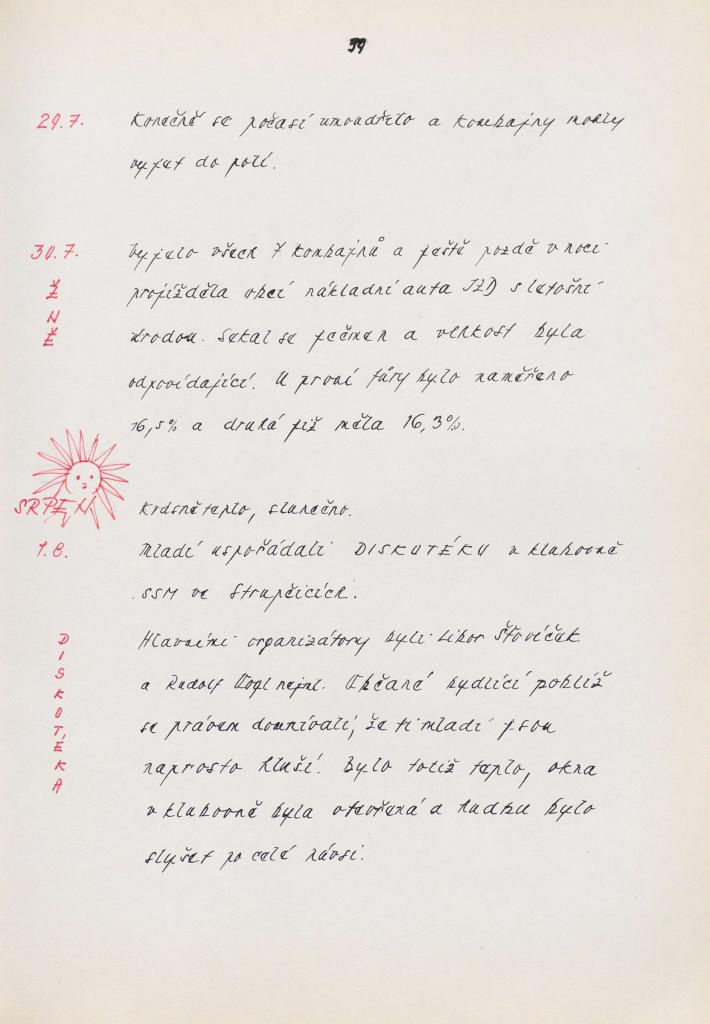 39
29.7. Konečně se počasí umoudřilo a kombajny mohly
vyjet do polí.
30.7. Vyjelo všech 7 kombajnů a ještě pozdě v noci
ŽNĚ
projížděla obcí nákladní auta JZD s letošní
úrodou. Sekal se ječmen a vlhkost byla
odpovídající. U první fůry bylo naměřeno
16,5% a druhá již měla 16,3%.
SRPEN Krásně teplo, slunečno.
1.8. Mladí uspořádali DISKOTÉKU v klubovně
SSM ve Strupčicích.
DISKOTÉKA
Hlavními organizátory byli Libor Šťovíček
a Rudolf Vogl nejml. Občané bydlící poblíž
se právem domnívali, že ti mladí jsou
naprosto hluší. Bylo totiž teplo, okna
v klubovně byla otevřená a hudbu bylo
slyšet po celé návsi.